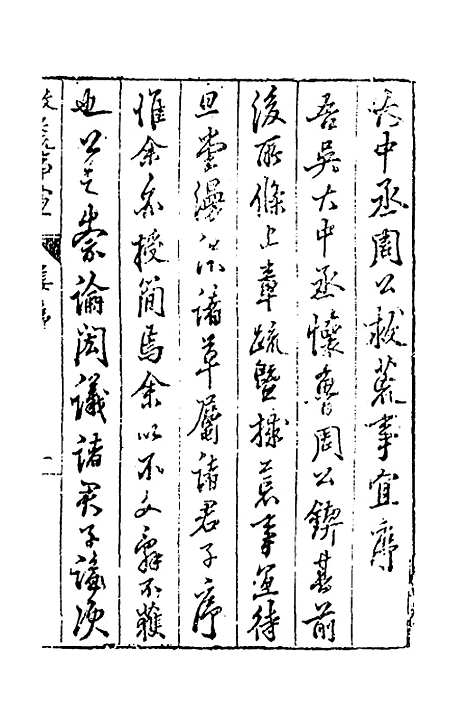 大中丞周公救荒事宜序
吾吳大中丞懷魯周公鍥其前
後所條上章疏暨捄荒事宜待
旦諸草屬諸君子序
惟余亦授簡焉余以不文辭不獲
也公之崇論閎議諸君子
救荒事宜
姜序
一